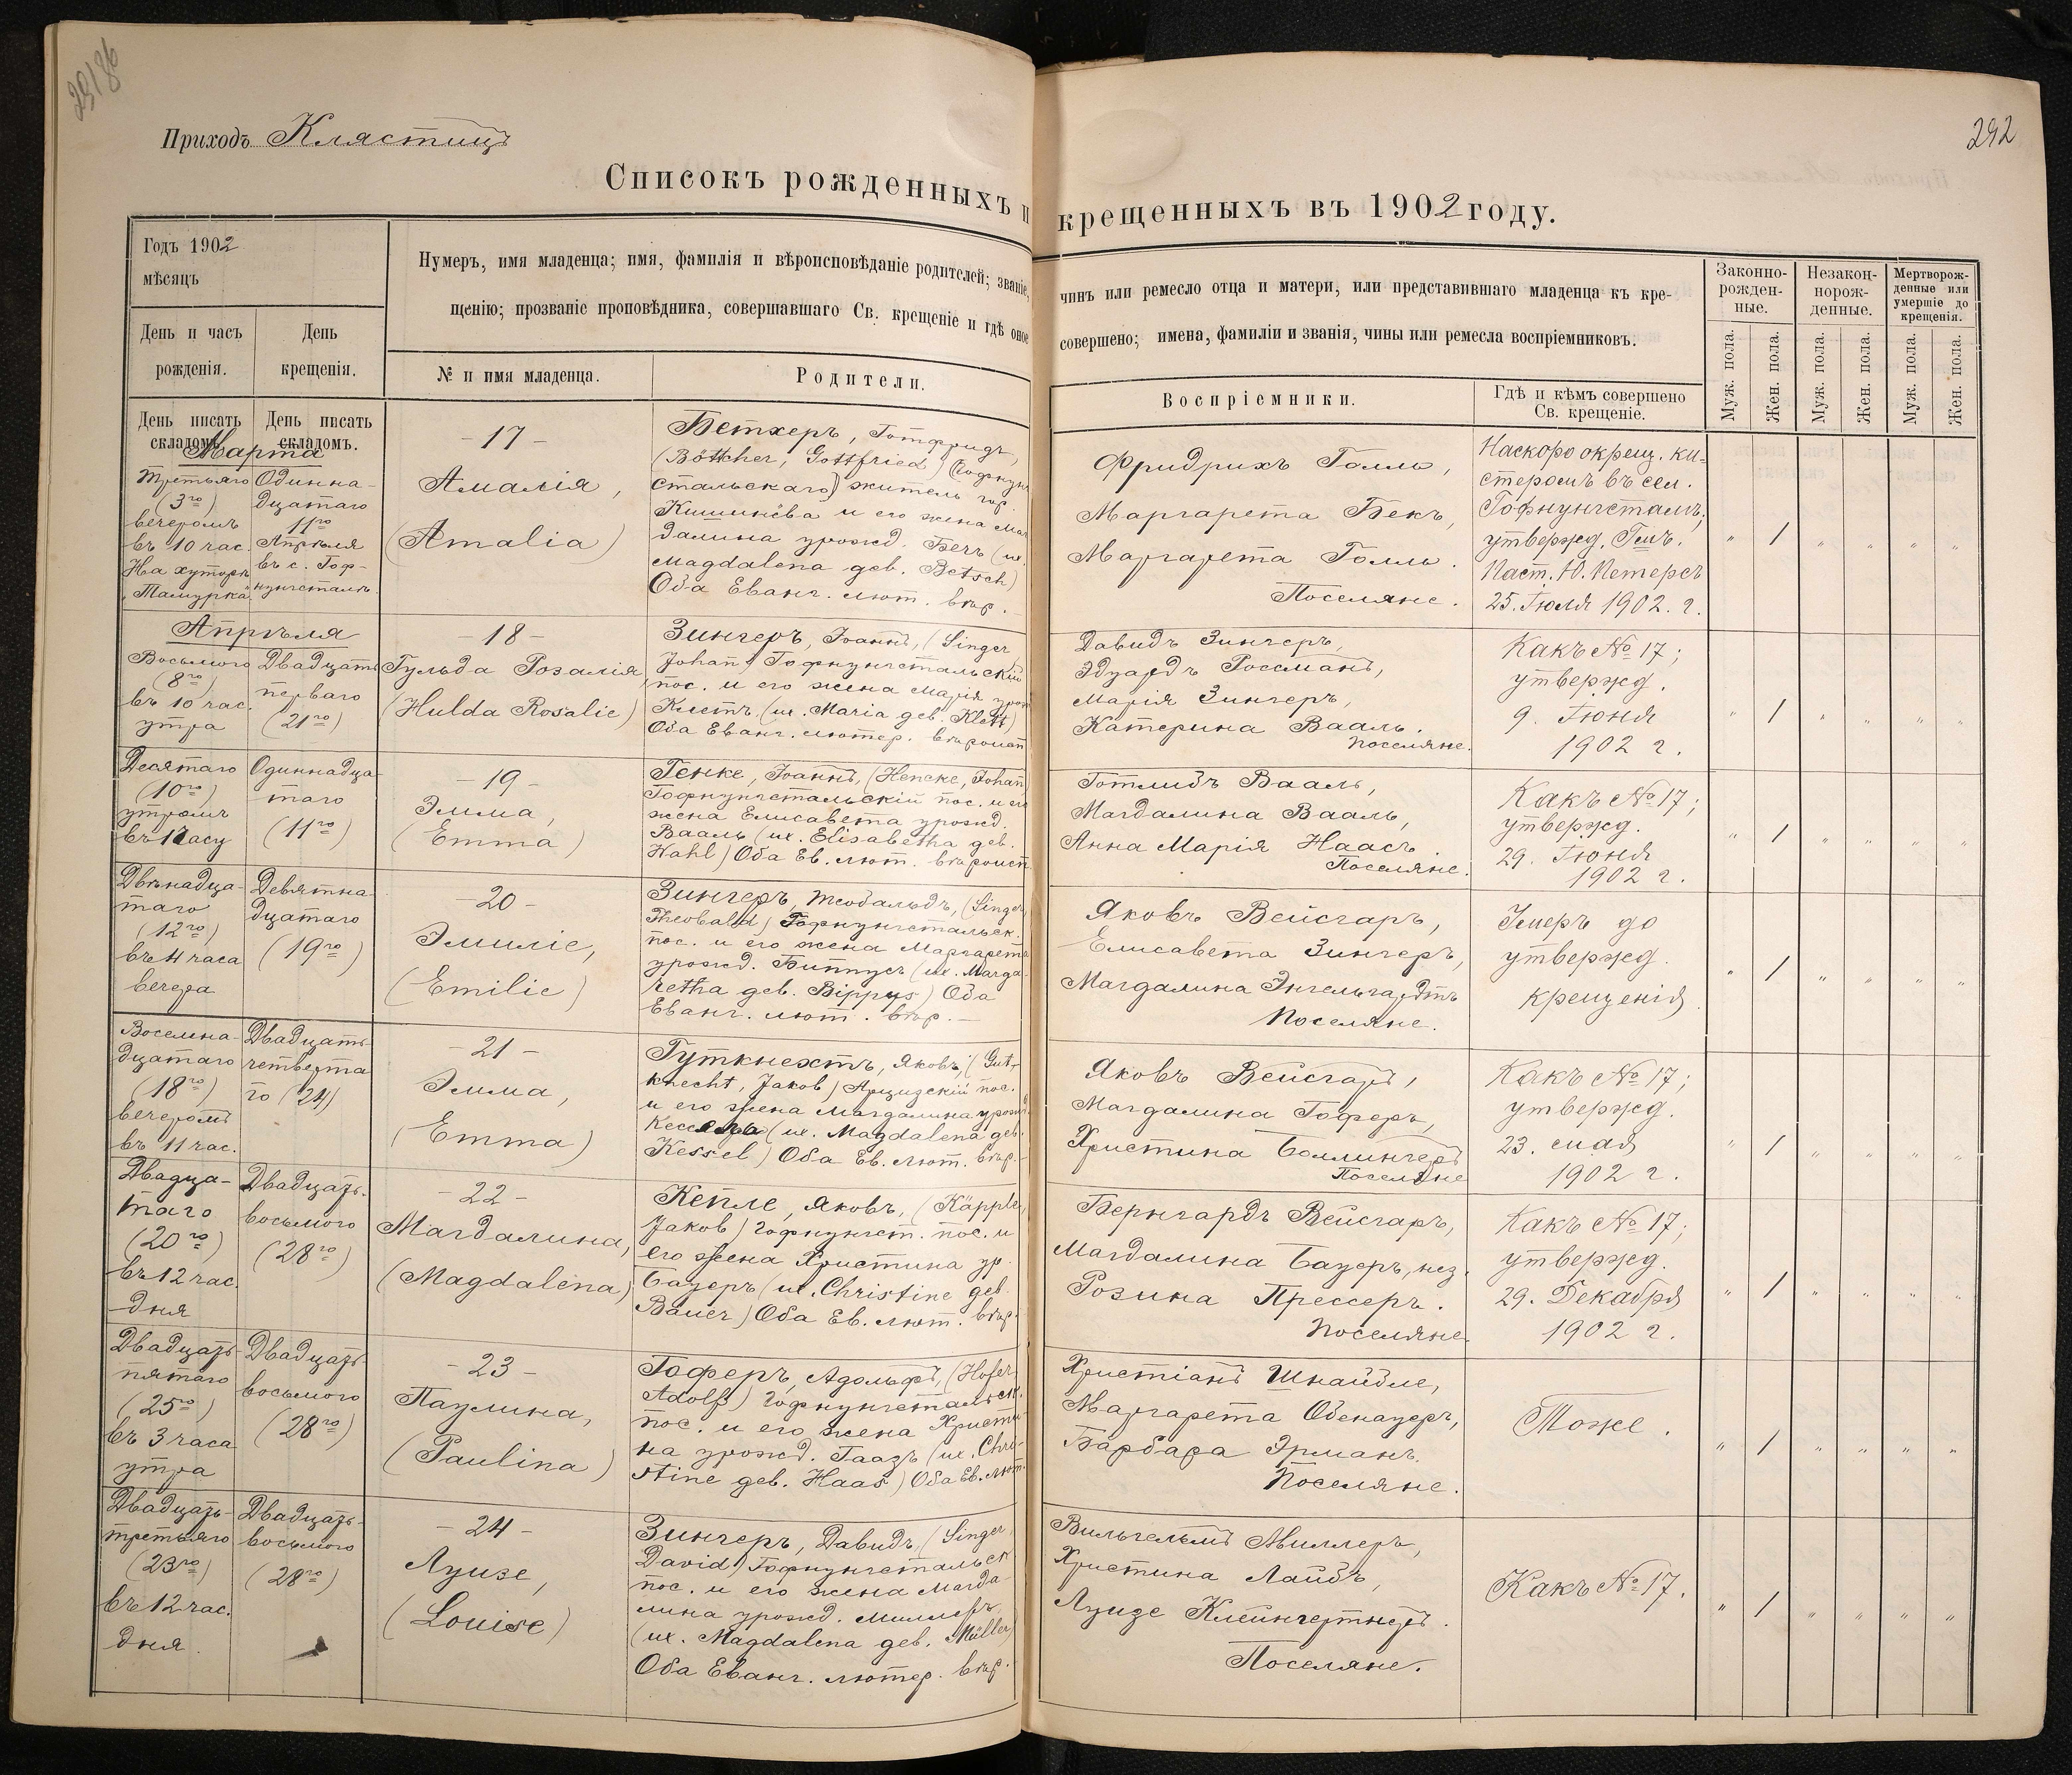 292
Приходъ Клястицъ
Списокъ рожденныхъ и крещенныхъ въ 1902 году.
Годъ 1902
мѣсяцъ
День и часъ
рожденія.
День
крещенія.
Нумеръ, имя младенца; имя, фамилія и вѣроисповѣданіе родителей; званіе, чинъ или ремесло отца и матери, или представившаго младенца къ кре-
щенію; прозваніе проповѣдника, совершавшаго Св. крещеніе и гдѣ оное совершено; имена, фамиліи и званія, чины или ремесла воспріемниковъ.
№ и имя младенца.
Родители.
Воспріемники.
Гдѣ и кѣмъ совершено
Св. крещеніе.
Законно-
рожден-
ные.
Незакон-
норож-
денные.
Мертворож-
денные или
умершіе до
крещенія.
Муж. пола.
Жен. пола.
Муж. пола.
Жен. пола.
Муж. пола.
Жен. пола.
День писать
складомъ.
День писать
складомъ.
Марта
Третьяго
(3го)
вечеромъ
въ 10 час.
На хуторѣ
"Тамурка"
Одинна-
дцатаго
11го
Апрѣля
въ с. Гоф-
нунгсталь.
- 17 -
Амалія,
(Amalia)
Бетхеръ, Готфридъ,
(Böttcher, Gottfried) (Гофнунг
стальскаго) житель гор.
Кишинёва и его жена Маг
далина урожд. Бечъ (ил.
Magdalena geb. Betsch)
Оба Еванг. лют. вѣр.
Фридрихъ Голль,
Маргарета Бекъ,
Маргарета Голль.
Поселяне.
Наскоро окрещ. ки-
стеромъ въ сел.
Гофнунгсталь;
утвержд. Ген.
Паст. Ю. Петерсъ
25. Іюля 1902. г.
" / " " " "
Апрѣля
Восьмого
(8го)
въ 10 час.
утра
Двадцать
перваго
(21го)
- 18 -
Гульда Розалія,
(Hulda Rosalie)
Зингеръ, Іоаннъ, (Singer
Johan) Гофнунгстальскій
пос. и его жена Марія урож
Клетъ. (ил. Maria geb. Klett)
Оба Еванг. лютер. вѣроисп
Давидъ Зингеръ,
Эдуардъ Россманъ,
Марія Зингеръ,
Катерина Вааль.
Поселяне.
Какъ № 17;
утвержд.
9. Іюня
1902 г.
" / " " " "
Десятаго
(10го)
утромъ
въ 1 часу
Одиннадца-
таго
(11го)
- 19 -
Эмма,
(Emma)
Генке, Іоаннъ, (Hencke, Johan
Гофнунгстальскій пос. и его
жена Елисавета урожд.
Вааль (ил. Elisabetha geb.
Wahl) Оба Ев. лют. вѣроисп
Готлибъ Вааль,
Магдалина Вааль,
Анна Марія Наасъ
Поселяне.
Какъ № 17;
утвержд.
29. Іюня
1902 г.
" / " " " "
Двѣнадца-
таго
(12го)
въ 4 часа
вечера
Девятна-
дцатаго
(19го)
- 20 -
Эмиліе,
(Emilie)
Зингеръ, Теобальдъ, (Singer,
Theobald) Гофнунгстальск.
пос. и его жена Маргарета
урожд. Биппусъ (ил. Marga-
retha geb. Bippus) Оба
Еванг. лют. вѣр. -
Яковъ Вейсгаръ,
Елисавета Зингеръ,
Магдалина Энгельгардтъ
Поселяне.
Умеръ до
утвержд.
крещенія.
" / " " " "
Восемна-
дцатаго
(18го)
вечеромъ
въ 11 час.
Двадцать-
четверта
го (24)
- 21 -
Эмма,
(Emma)
Гуткнехтъ, Яковъ, (Gut-
knecht, Jakob) Арцизскій пос.
и его жена Магдалина урож.
Кессель (ил. Magdalena geb.
Kessel) Оба Ев. лют. вѣр.
Яковъ Вейсгаръ,
Магдалина Гоферъ,
Христина Боллингеръ
Поселяне
Какъ № 17;
утвержд.
23. мая
1902 г.
" / " " " "
Двадца-
таго
(20го)
въ 12 час.
дня
Двадцать-
восьмого
(28го)
- 22 -
Магдалина,
(Magdalena)
Кепле, Яковъ, (Käpple,
Jakob) Гофнунгст. пос. и
его жена Христина ур.
Бауеръ (ил. Christine geb.
Bauer) Оба Ев. лют. вѣр.
Бернгардъ Вейсгаръ,
Магдалина Бауеръ, нез.
Розина Прессеръ.
Поселяне.
Какъ № 17;
утвержд.
29. Декабря
1902 г.
" / " " " "
Двадцать-
пятаго
(25го)
въ 3 часа
утра
Двадцать-
восьмого
(28го)
- 23 -
Паулина,
(Paulina)
Гоферъ, Адольфъ, (Hofer,
Adolf) Гофнунгстальск.
пос. и его жена Христи
на урожд. Гаазъ (ил. Chri-
stine geb. Haas) Оба Ев. лют.
Христіанъ Шнайдле,
Маргарета Обенауеръ,
Барбара Эрманъ.
Поселяне.
Тоже.
" / " " " "
Двадцать-
третьяго
(23го)
въ 12 час.
дня.
Двадцать-
восьмого
(28го)
- 24 -
Луизе,
(Louise)
Зингеръ, Давидъ, (Singer,
David) Гофнунгстальск
пос. и его жена Магда
лина урожд. Миллеръ,
(ил. Magdalena geb. Müller)
Оба Еванг. лютер. вѣр.
Вильгельмъ Миллеръ,
Христина Лайбъ,
Луизе Клейнгертнеръ.
Поселяне.
Какъ № 17.
" / " " " "